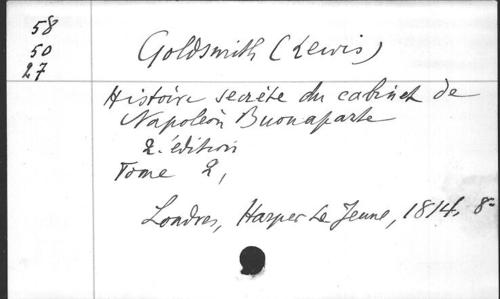 58
50
27
Goldsmith (Lewis)
Histoire secrète du cabinet de
Napoléon Buonaparte
2. édition
Tome 2,
Londres, Harper Le Jeune, 1814, 8º